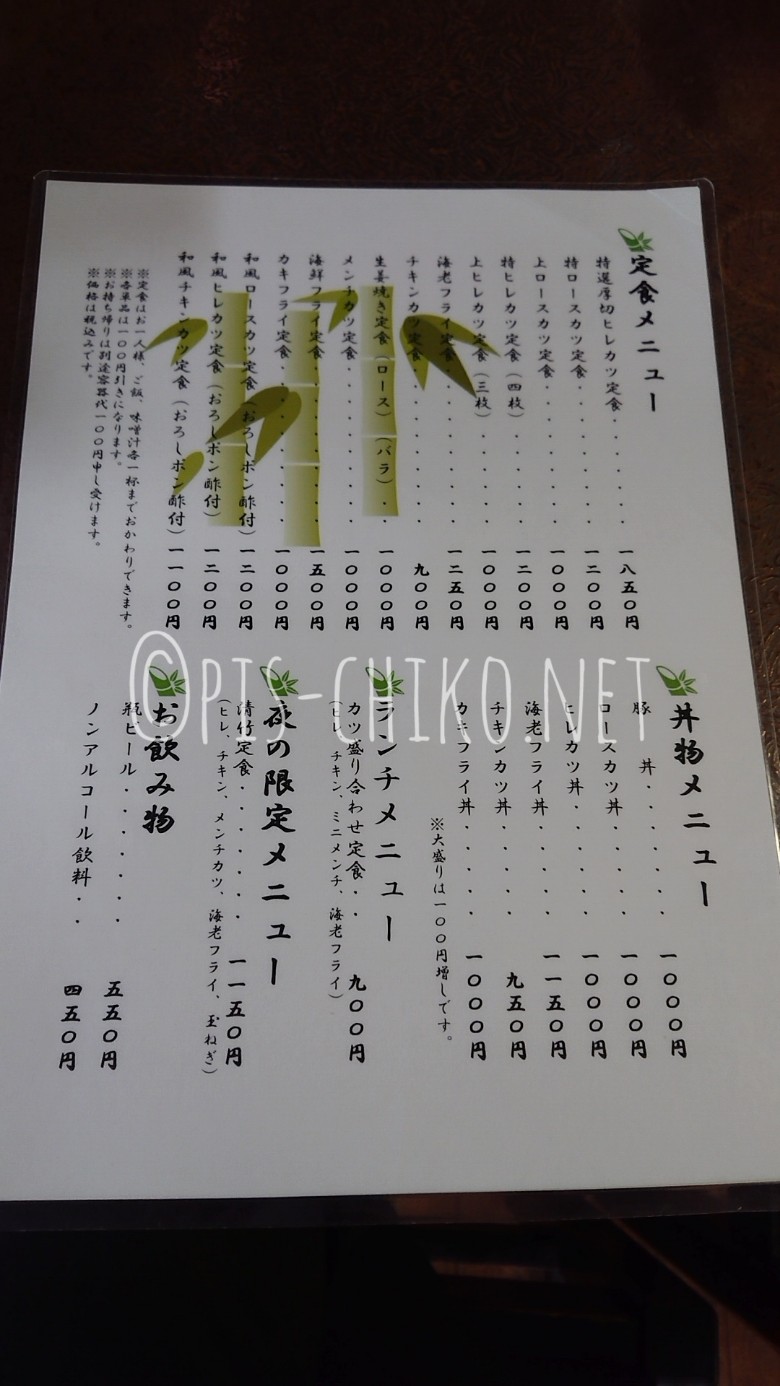 定食メニュー
特選厚切ヒレカツ定食・・・・・・一八五〇円
特ロースカツ定食・・・・・・・一二〇〇円
上ロースカツ定食・・・・・・・一〇〇〇円
特ヒレカツ定食（四枚）・・・・一二〇〇円
上ヒレカツ定食（三枚）・・・・一〇〇〇円
海老フライ定食・・・・・・・・一二五〇円
チキンカツ定食・・・・・・・・九〇〇円
生姜焼き定食（ロース）（バラ）・・一〇〇〇円
メンチカツ定食・・・・・・・・一〇〇〇円
海鮮フライ定食・・・・・・・・一五〇〇円
カキフライ定食・・・・・・・・一〇〇〇円
和風ロースカツ定食（おろしポン酢付）一二〇〇円
和風ヒレカツ定食（おろしポン酢付）一二〇〇円
和風チキンカツ定食（おろしポン酢付）一一〇〇円
※定食はお一人様、ご飯、味噌汁各一杯までおかわりできます。
※各単品は一〇〇円引きになります。
※お持ち帰りは別途容器代一〇〇円申し受けます。
※価格は税込みです。
丼物メニュー
豚　丼・・・・・・・一〇〇〇円
ロースカツ丼・・・・・一〇〇〇円
ヒレカツ丼・・・・・・一〇〇〇円
海老フライ丼・・・・・一一五〇円
チキンカツ丼・・・・・九五〇円
カキフライ丼・・・・・一〇〇〇円
※大盛りは一〇〇円増しです。
ランチメニュー
カツ盛り合わせ定食・・九〇〇円
（ヒレ、チキン、ミニメンチ、海老フライ）
夜の限定メニュー
清竹定食・・・・・・・一一五〇円
（ヒレ、チキン、メンチカツ、海老フライ、玉ねぎ）
お飲み物
瓶ビール・・・・・・・五五〇円
ノンアルコール飲料・・四五〇円
©PIS-CHIKO.NET